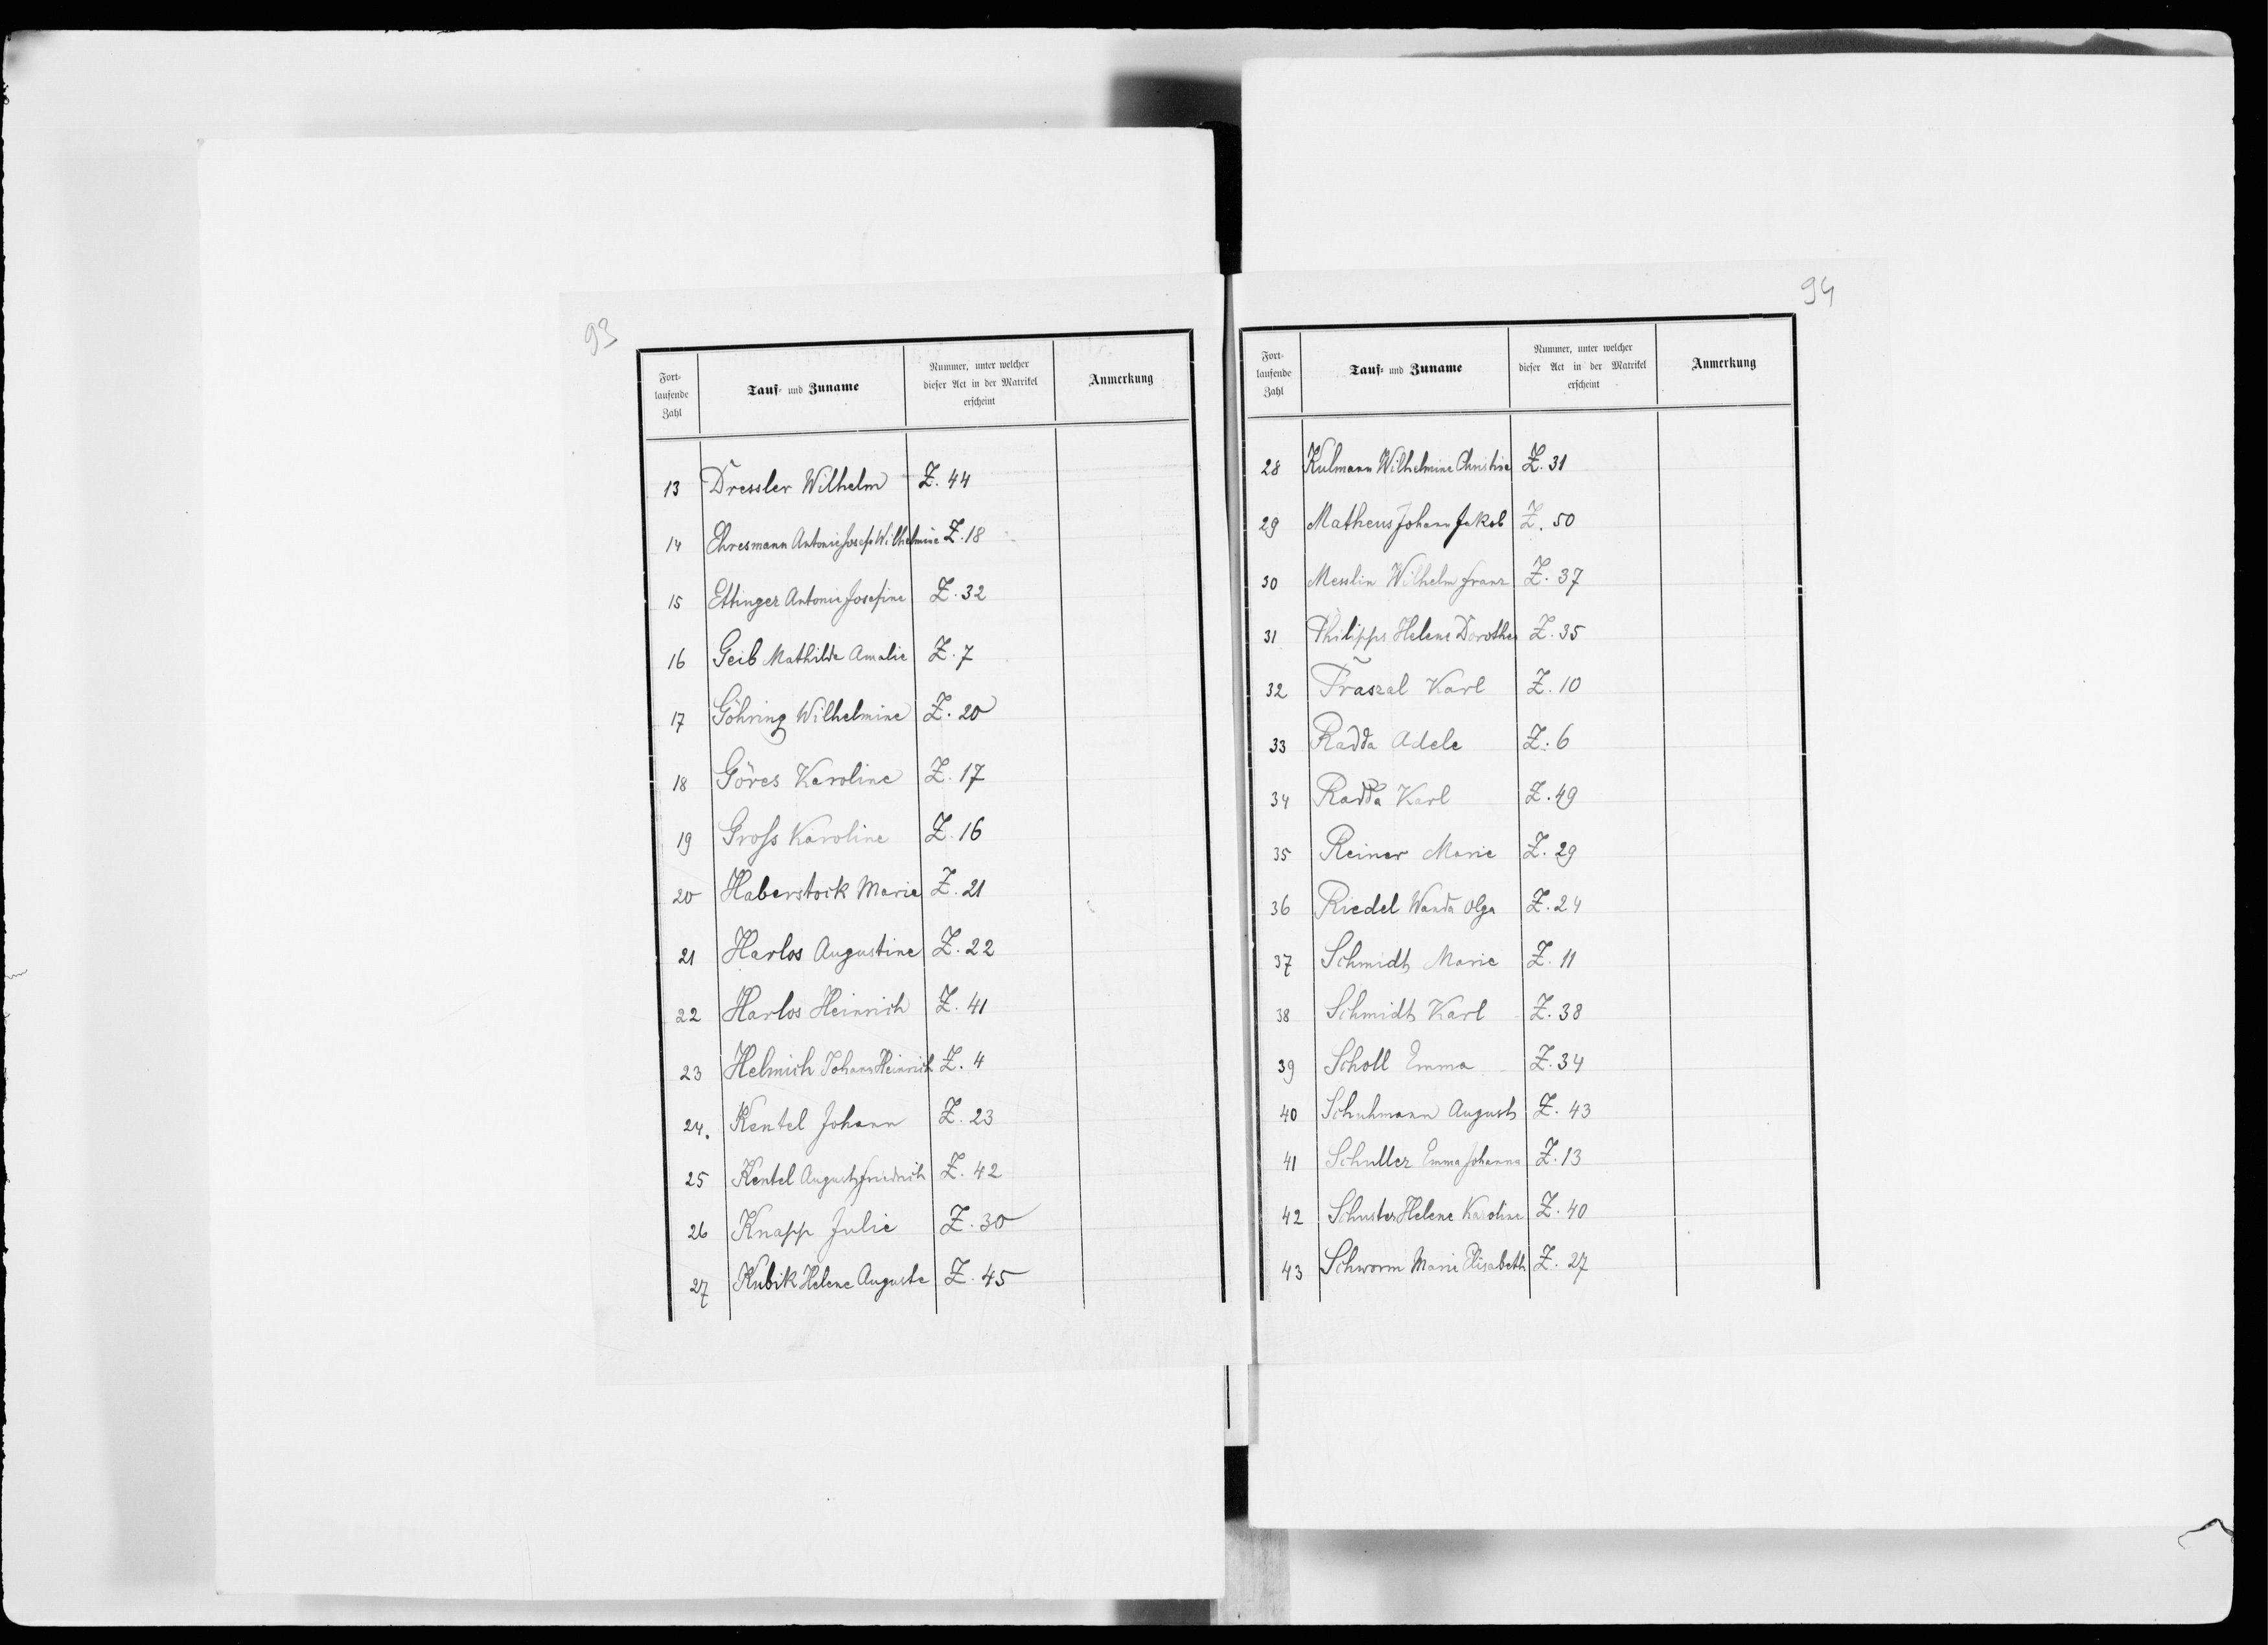 93
Fort-
laufende
Zahl
Tauf- und Zuname
Nummer, unter welcher
dieser Act in der Matrikel
erscheint
Anmerkung
13 Dressler Wilhelm Z. 44
14 Ehresmann Antonie Josefe Wilhelmine Z. 18
15 Ettinger Antonie Josefine Z. 32
16 Geib Mathilde Amalie Z. 7
17 Göhring Wilhelmine Z. 20
18 Göres Karoline Z. 17
19 Groß Karoline Z. 16
20 Haberstock Marie Z. 21
21 Harlos Augustine Z. 22
22 Harlos Heinrich Z. 41
23 Helmich Johann Heinrich Z. 4
24. Kentel Johann Z. 23
25 Kentel August Friedrich Z. 42
26 Knapp Julie Z. 30
27 Kubik Helene Auguste Z. 45
94
Fort-
laufende
Zahl
Tauf- und Zuname
Nummer, unter welcher
dieser Act in der Matrikel
erscheint
Anmerkung
28 Kulmann Wilhelmine Christine Z. 31
29 Matheus Johann Jakob Z. 50
30 Messlin Wilhelm Franz Z. 37
31 Philipps Helene Dorothea Z. 35
32 Praszal Karl Z. 10
33 Radda Adele Z. 6
34 Radda Karl Z. 49
35 Reiner Marie Z. 29
36 Riedel Wanda Olga Z. 24
37 Schmidt Marie Z. 11
38 Schmidt Karl Z. 38
39 Scholl Emma Z. 34
40 Schuhmann August Z. 43
41 Schuller Emma Johanna Z. 13
42 Schuster Helene Karoline Z. 40
43 Schworm Marie Elisabeth Z. 27